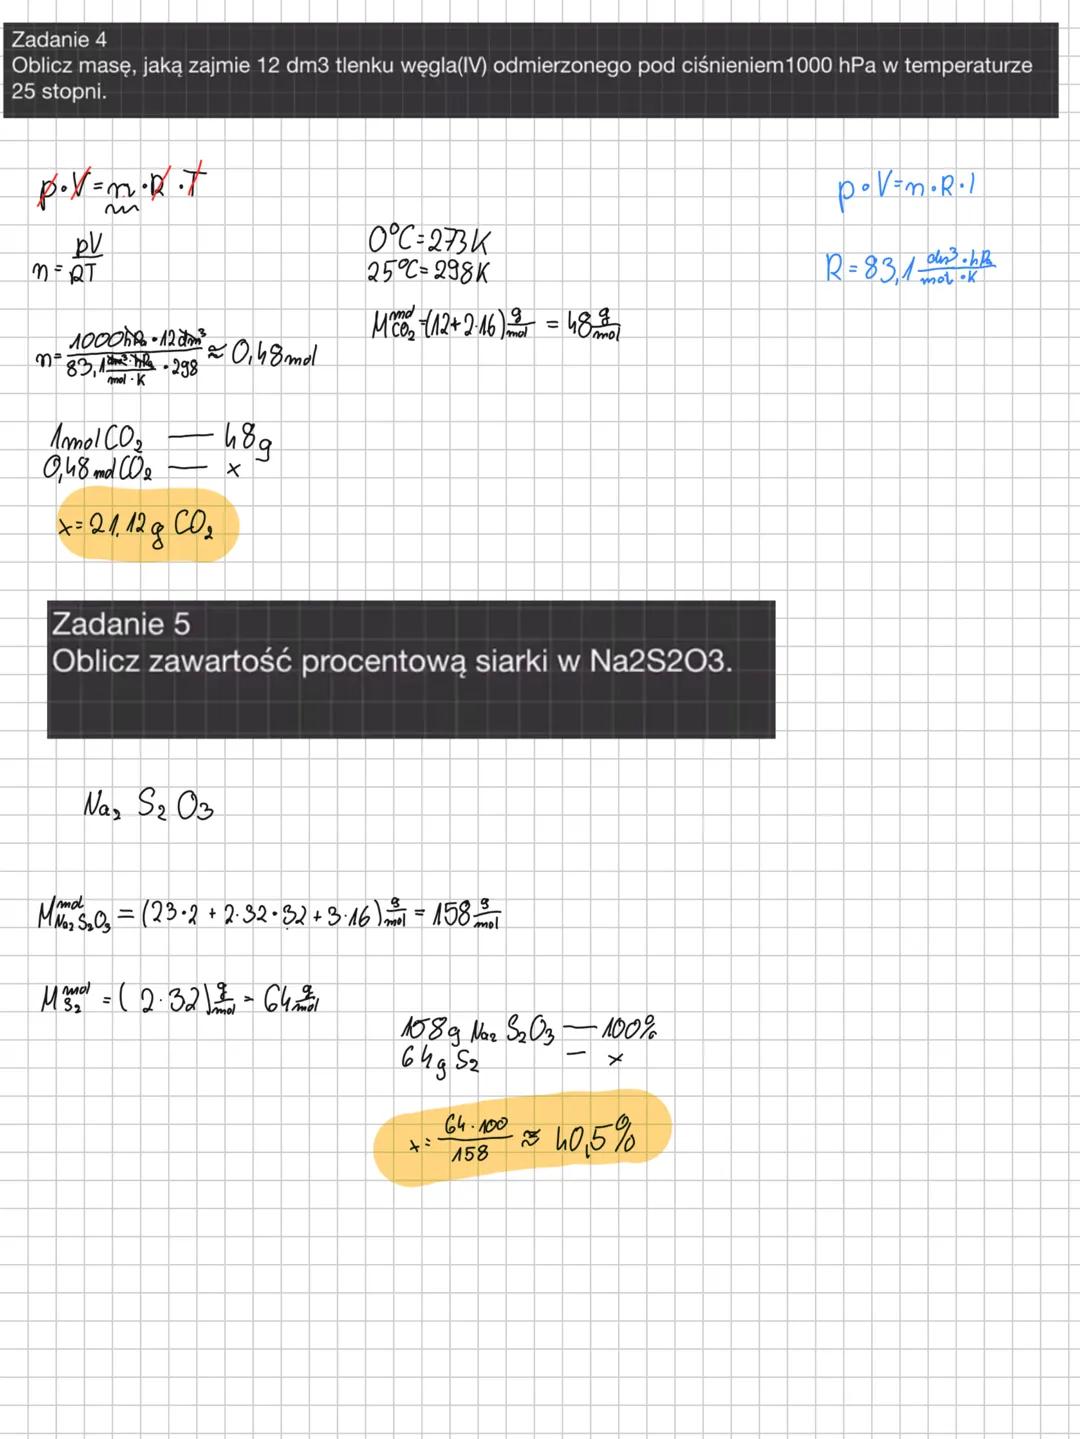 Zadanie 4
Oblicz masę, jaką zajmie 12 dm3 tlenku węgla(IV) odmierzonego pod ciśnieniem1000 hPa w temperaturze
25 stopni.
p·V=n·R·T
p·V=n·R·T
n = pV/RT
0°C=273K
25°C=298K
R=83,1 dm³·hPa/mol·K
M mol CO₂ =(12+2·16) g/mol = 48 g/mol
n= 1000hPa·12dm³ / 83,1 dm³·hPa/mol·K ·298 ≈ 0,48mol
1mol CO₂ — 48g
0,48 mol CO₂ — x
x=21,12g CO₂
Zadanie 5
Oblicz zawartość procentową siarki w Na2S2O3.
Na₂ S₂ O₃
M mol Na₂S₂O₃ = (23·2 + 2·32·32 + 3·16) g/mol = 158 g/mol
M mol S₂ = (2·32) g/mol = 64 g/mol
158g Na₂ S₂O₃ — 100%
64g S₂ — x
x= 64·100/158 ≈ 40,5%